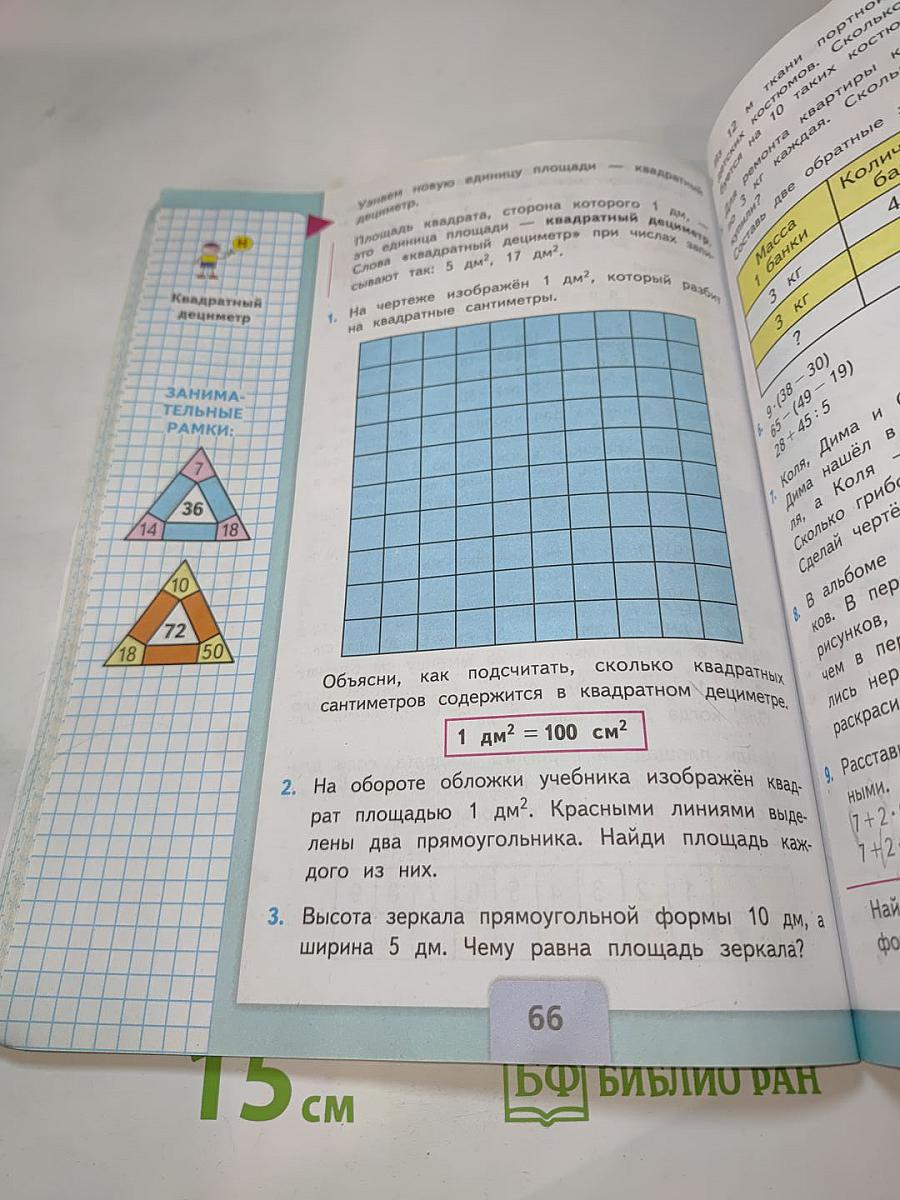 Н
Квадратный
дециметр
ЗАНИМА-
ТЕЛЬНЫЕ
РАМКИ:
7
36
14 18
10
72
18 50
Узнаем новую единицу площади — квадратный
дециметр.
Площадь квадрата, сторона которого 1 дм, —
это единица площади — квадратный дециметр.
Слова «квадратный дециметр» при числах запи-
сывают так: 5 дм², 17 дм².
1. На чертеже изображён 1 дм², который разбит
на квадратные сантиметры.
Объясни, как подсчитать, сколько квадратных
сантиметров содержится в квадратном дециметре.
1 дм² = 100 см²
2. На обороте обложки учебника изображён квад-
рат площадью 1 дм². Красными линиями выде-
лены два прямоугольника. Найди площадь каж-
дого из них.
3. Высота зеркала прямоугольной формы 10 дм, а
ширина 5 дм. Чему равна площадь зеркала?
66
12 м ткани портной
детских костюмов. Сколько
на 10 таких костю
Для ремонта квартиры к
по 3 кг каждая. Сколь
купили?
Составь две обратные з
Масса
1 банки
Колич
ба
3 кг
4
3 кг
?
9·(38 − 30)
65 − (49 − 19)
28 + 45 : 5
7. Коля, Дима и С
Дима нашёл в
ля, а Коля —
Сколько грибо
Сделай чертё
8. В альбоме
ков. В пер
рисунков,
чем в пе
лись нер
раскраси
9. Расстав
ными.
(7 + 2 ·
7 + (2 ·
Най
фо
15 см
БФ БИБЛИО РАН